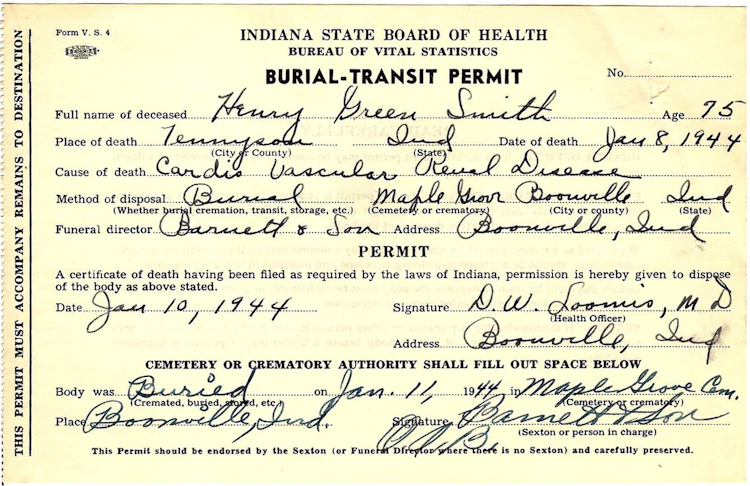 Form V. S. 4
INDIANA STATE BOARD OF HEALTH
BUREAU OF VITAL STATISTICS
BURIAL-TRANSIT PERMIT
No.
Full name of deceased Henry Green Smith Age 75
Place of death Tennyson Ind Date of death Jan 8, 1944
(City or County) (State)
Cause of death Cardio Vascular Renal Disease
Method of disposal Burial Maple Grove Boonville Ind
(Whether burial cremation, transit, storage, etc.) (Cemetery or crematory) (City or county) (State)
Funeral director Barnett & Son Address Boonville, Ind
PERMIT
A certificate of death having been filed as required by the laws of Indiana, permission is hereby given to dispose
of the body as above stated.
Date Jan 10, 1944 Signature D. W. Loomis, M D
(Health Officer)
Address Boonville, Ind
CEMETERY OR CREMATORY AUTHORITY SHALL FILL OUT SPACE BELOW
Body was Buried on Jan. 11, 1944 in Maple Grove Cem.
(Cremated, buried, stored, etc.) (Cemetery or crematory)
Place Boonville, Ind. Signature Barnett & Son
(Sexton or person in charge)
This Permit should be endorsed by the Sexton (or Funeral Director where there is no Sexton) and carefully preserved.
THIS PERMIT MUST ACCOMPANY REMAINS TO DESTINATION